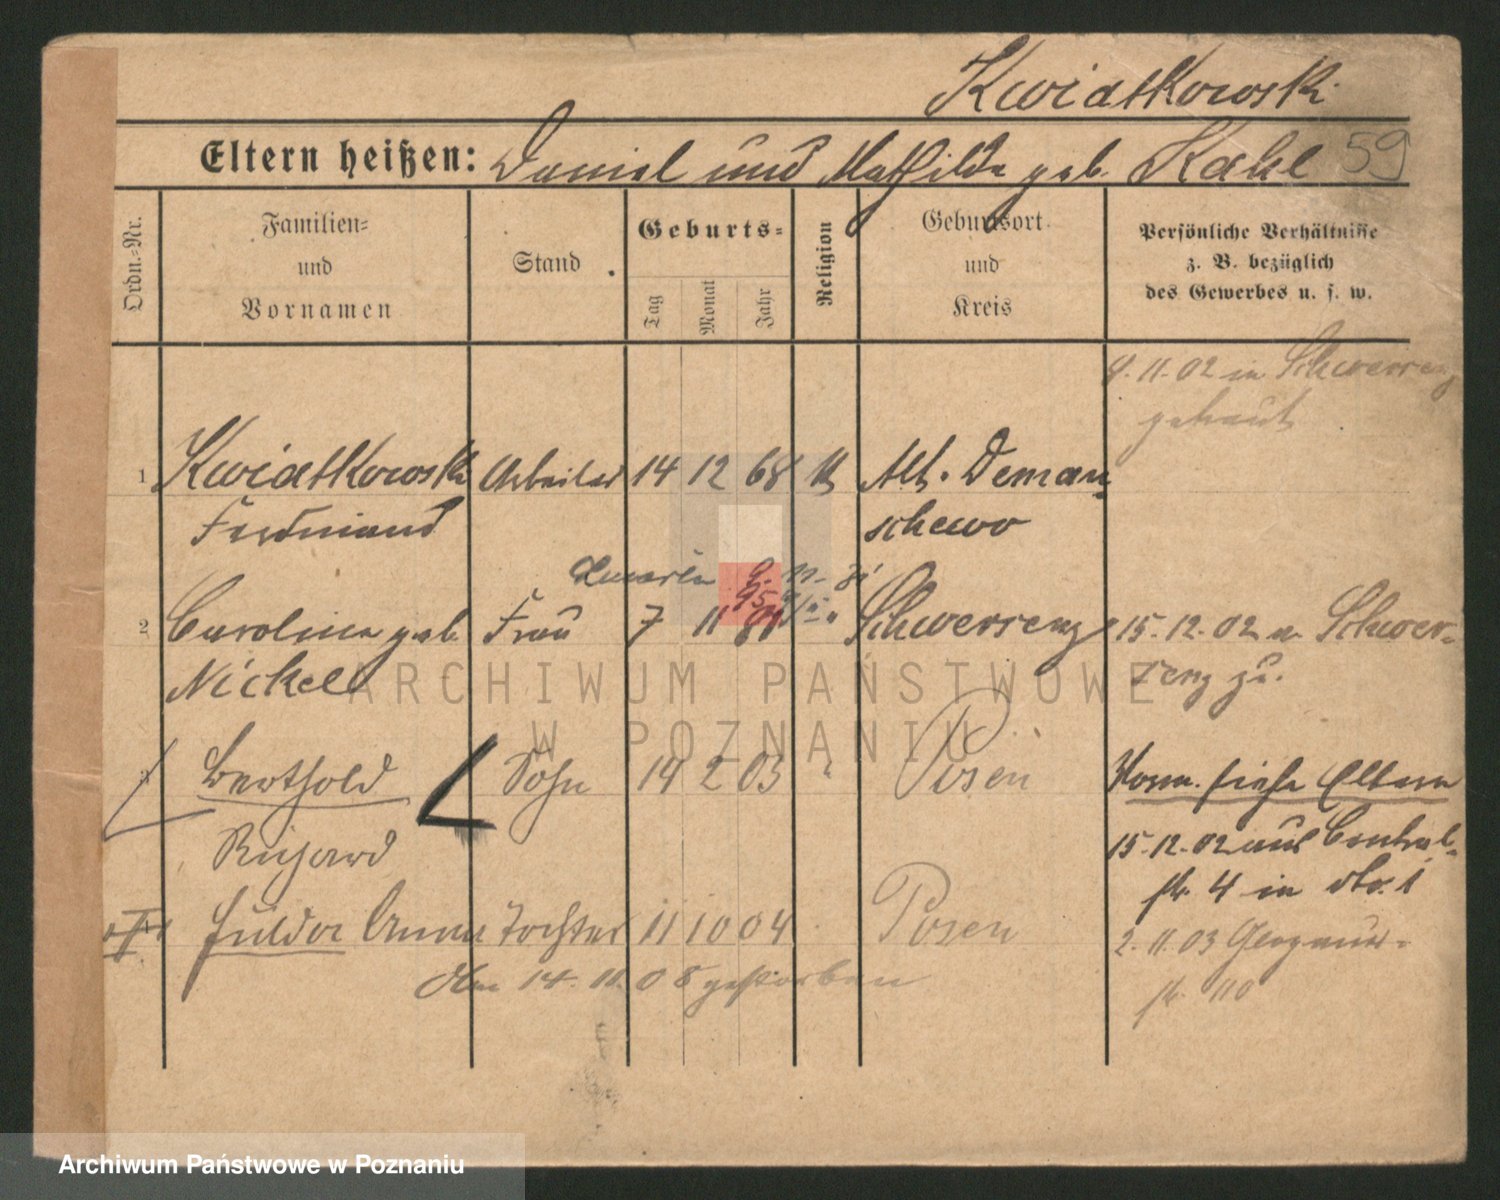 Kwiatkowski
Eltern heißen: Daniel und Mathilde geb. Kahl 59
Ordn.-Nr.
Familien-
und
Vornamen
Stand
Geburts-
Tag
Monat
Jahr
Religion
Geburtsort
und
Kreis
Persönliche Verhältnisse
z. B. bezüglich
des Gewerbes u. s. w.
9. 11. 02 in Schwersenz
getraut
1 Kwiatkowski Arbeiter 14 12 68 Alt. Deman-
Ferdinand schewo
2 Caroline geb. Frau 7 11 Schwersenz 15. 12. 02 v. Schwer-
Nickel senz zu.
3 Berthold Sohn 14 2 03 " Posen Vorm. siehe Eltern
Richard 15. 12. 02 aus Central-
str. 4 in No. 1
Anna Tochter 11 10 04 Posen 2. 11. 03
Am 14. 11. 08 gestorben str. 110
ARCHIWUM PAŃSTWOWE
W POZNANIU
Archiwum Państwowe w Poznaniu